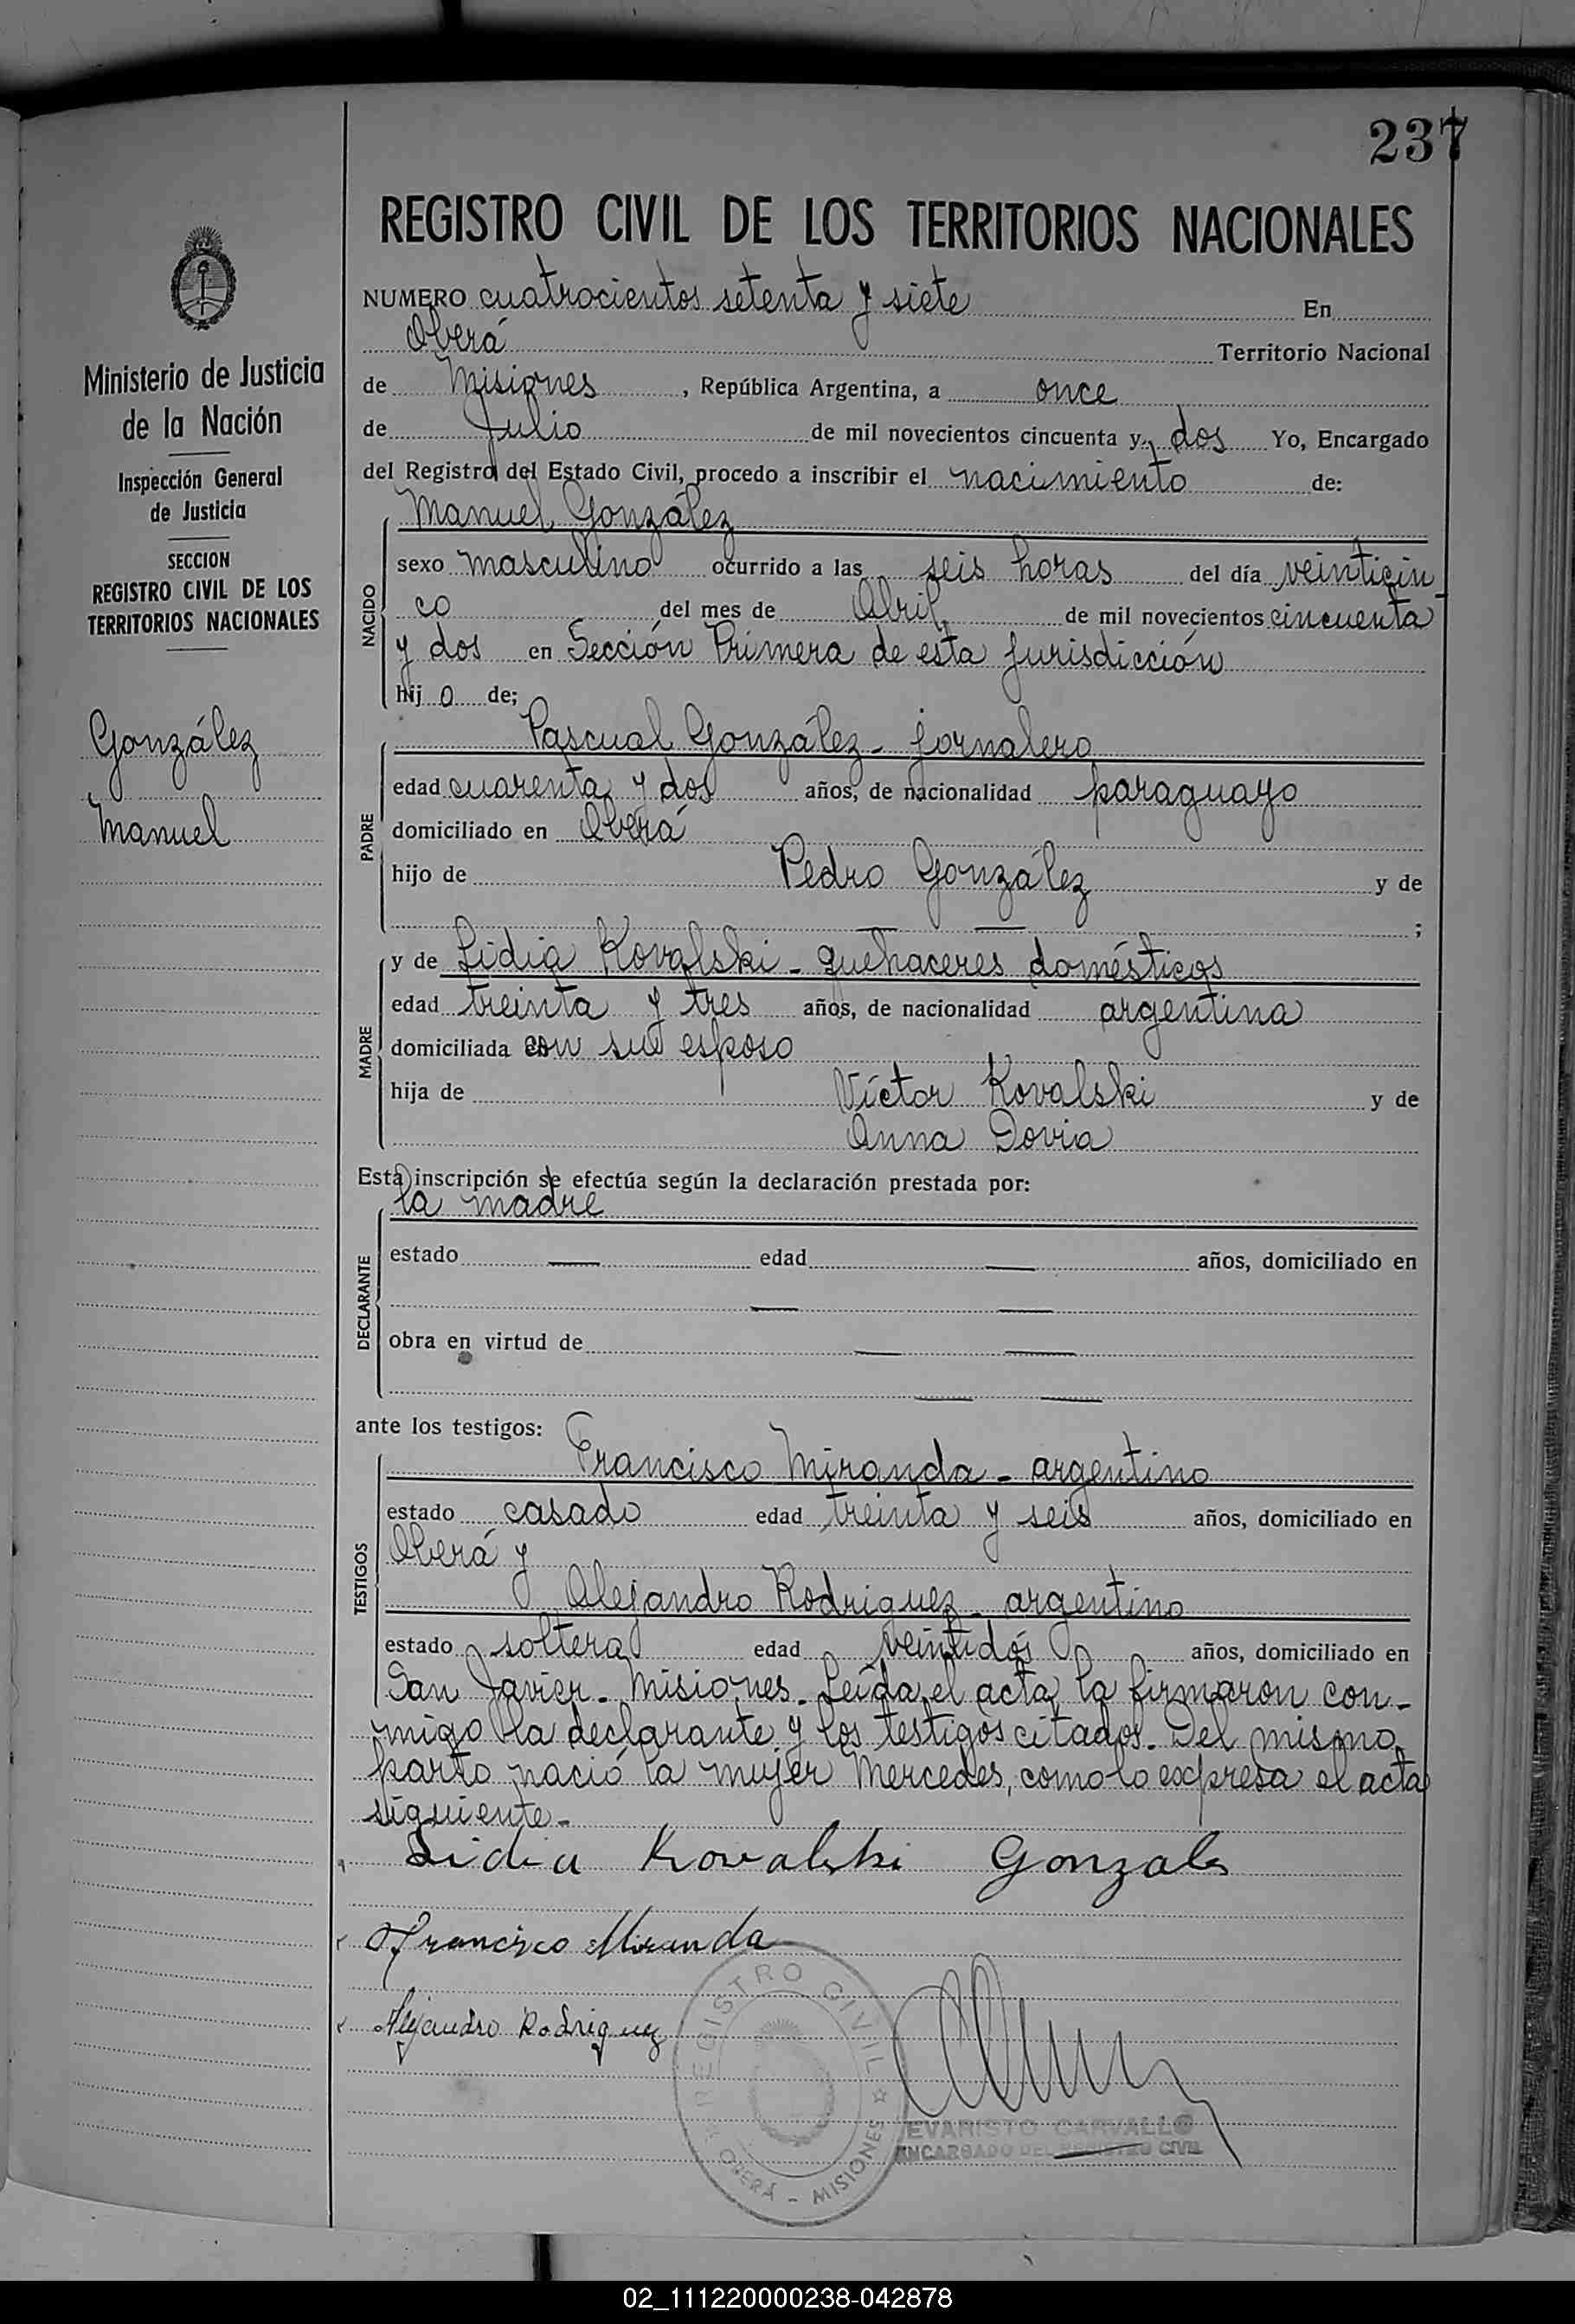 237
REGISTRO CIVIL DE LOS TERRITORIOS NACIONALES
Ministerio de Justicia
de la Nación
Inspección General
de Justicia
SECCION
REGISTRO CIVIL DE LOS
TERRITORIOS NACIONALES
González
Manuel
NUMERO cuatrocientos setenta y siete En
Oberá Territorio Nacional
de Misiones, República Argentina, a once
de Julio de mil novecientos cincuenta y dos Yo, Encargado
del Registro del Estado Civil, procedo a inscribir el nacimiento de:
Manuel González
NACIDO
sexo masculino ocurrido a las seis horas del día veinticin-
co del mes de Abril de mil novecientos cincuenta
y dos en Sección Primera de esta jurisdicción
hijo de;
Pascual González - jornalero
PADRE
edad cuarenta y dos años, de nacionalidad paraguayo
domiciliado en Oberá
hijo de Pedro González y de
— — ;
MADRE
y de Lidia Kovalski - quehaceres domésticos
edad treinta y tres años, de nacionalidad argentina
domiciliada con su esposo
hija de Víctor Kovalski y de
Anna Dovia
Esta inscripción se efectúa según la declaración prestada por:
la madre
DECLARANTE
estado — edad — años, domiciliado en
— —
obra en virtud de — —
— —
ante los testigos:
Francisco Miranda - argentino
TESTIGOS
estado casado edad treinta y seis años, domiciliado en
Oberá y
Alejandro Rodriguez - argentino
estado soltero edad veintidós años, domiciliado en
San Javier - Misiones. Leída el acta, la firmaron con-
migo la declarante y los testigos citados. Del mismo
parto nació la mujer Mercedes, como lo expresa el acta
siguiente.-
Lidia Kowalski Gonzales
Francisco Miranda
Alejandro Rodriguez
REGISTRO CIVIL
OBERÁ - MISIONES
EVARISTO CARVALLO
ENCARGADO DEL REGISTRO CIVIL
02_111220000238-042878